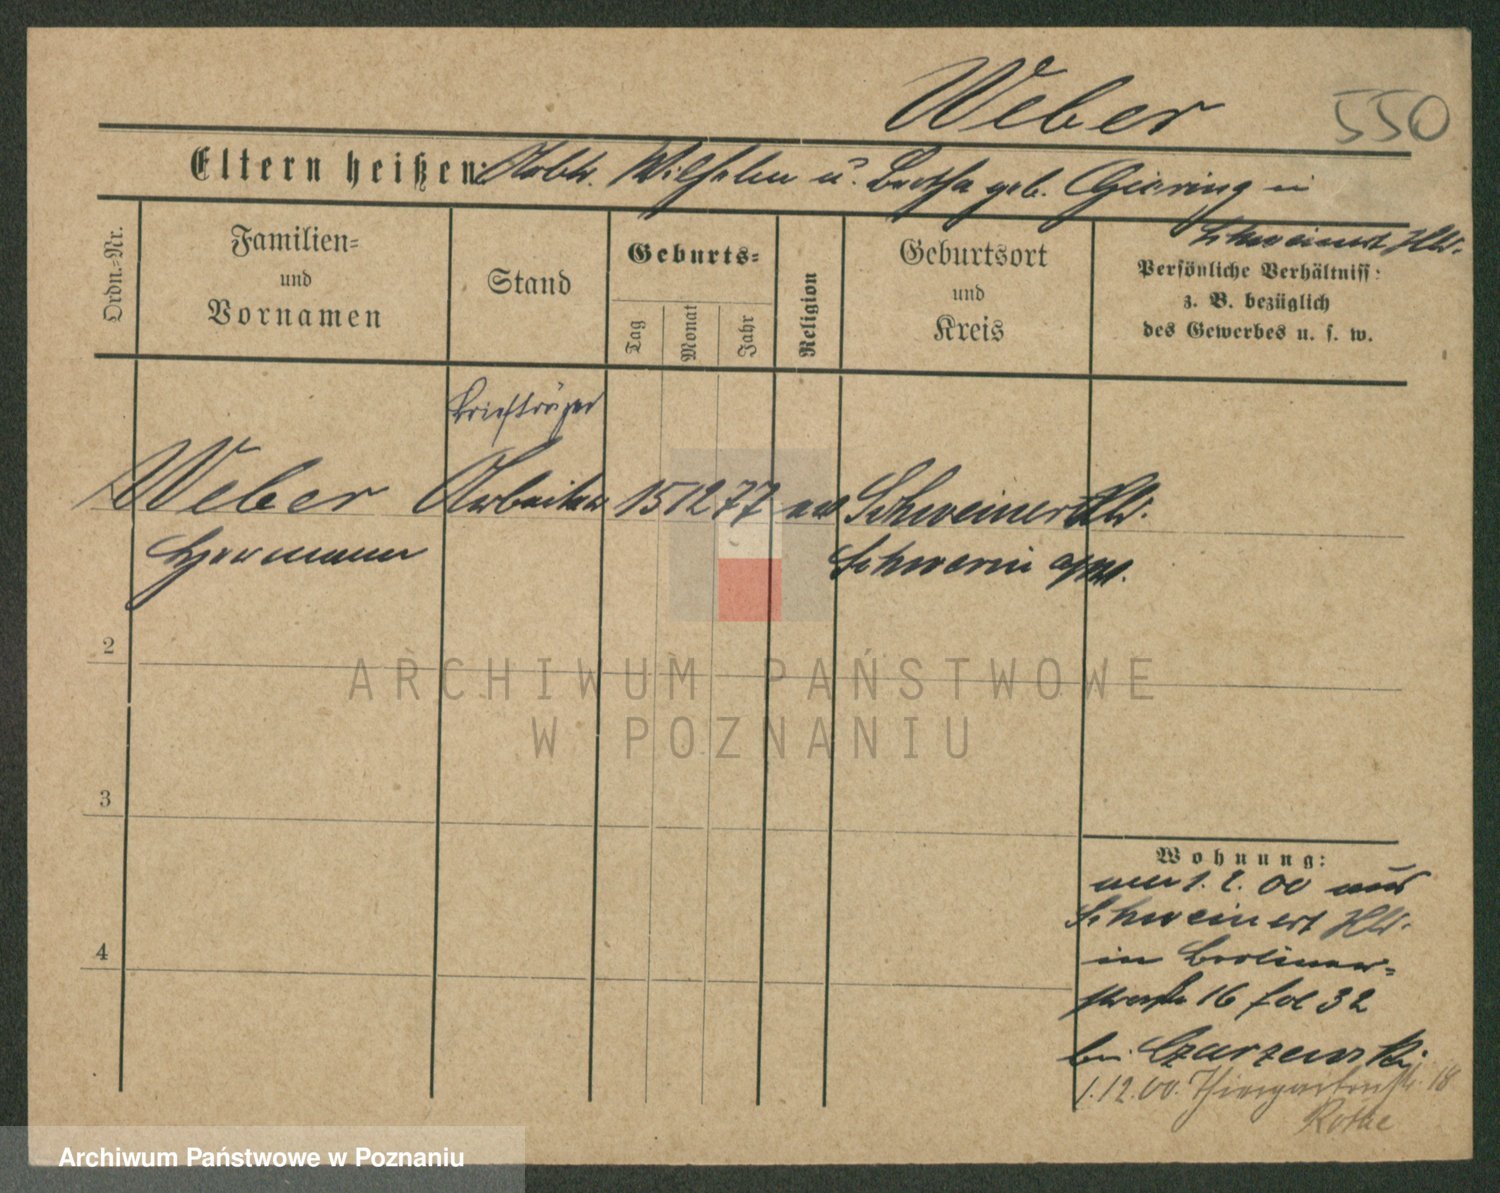 Weber
550
Eltern heißen: Arbtr. Wilhelm u. Bertha geb. Giering in
Schweinert Hld.
Ordn.-Nr.
Familien-
und
Vornamen
Stand
Geburts-
Tag
Monat
Jahr
Religion
Geburtsort
und
Kreis
Persönliche Verhältniss:
z. B. bezüglich
des Gewerbes u. s. w.
Briefträger
Weber Arbeiter 15 12 77 Schweinert Hld.
Hermann Schwerin a/W.
2
3
4
Wohnung:
1. 2. 00 aus
Schweinert Hld.
in Berliner-
straße 16 fol 32
bei Czarzewski
1.12.00. Thiergartenstr. 18
Rothe
ARCHIWUM PAŃSTWOWE
W POZNANIU
Archiwum Państwowe w Poznaniu